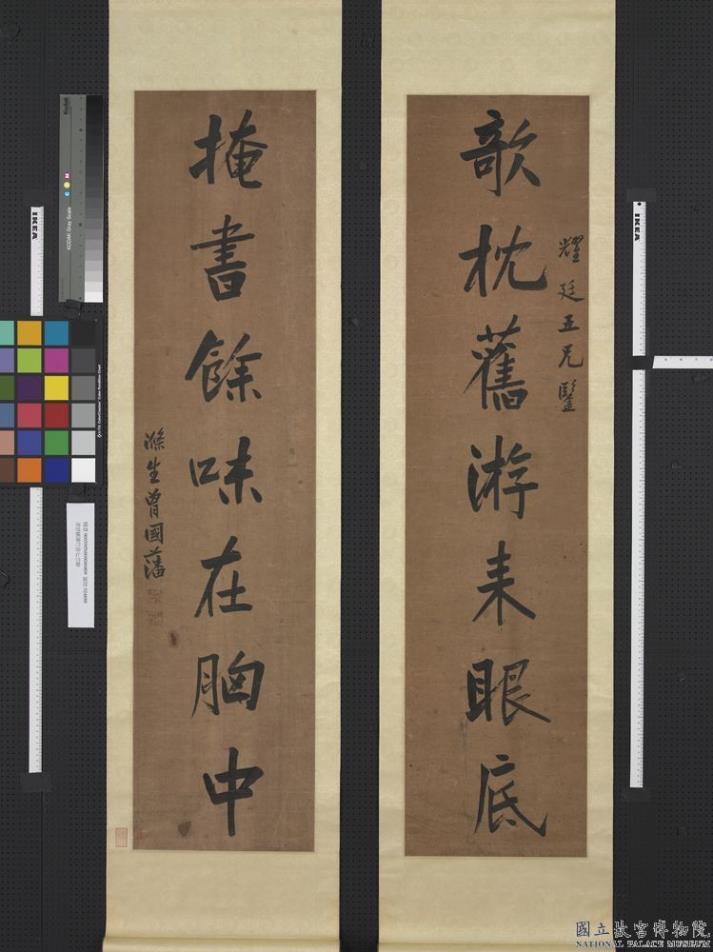 耀廷五兄鑒
欹枕舊游來眼底
掩書餘味在胸中
滌生曾國藩
IKEA
IKEA
國立故宮博物院
NATIONAL PALACE MUSEUM